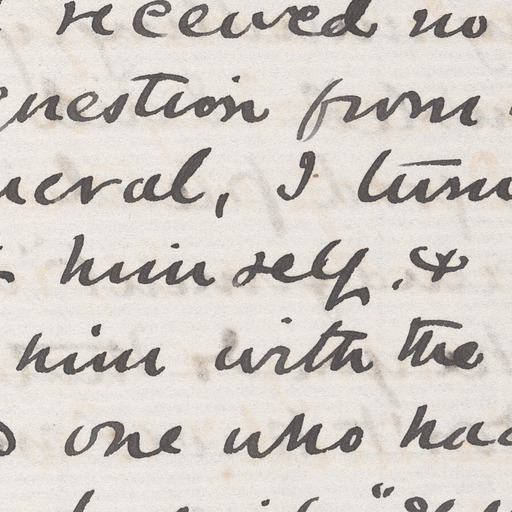 received no
question from
neral, I turn
himself. &
him with the
one who had